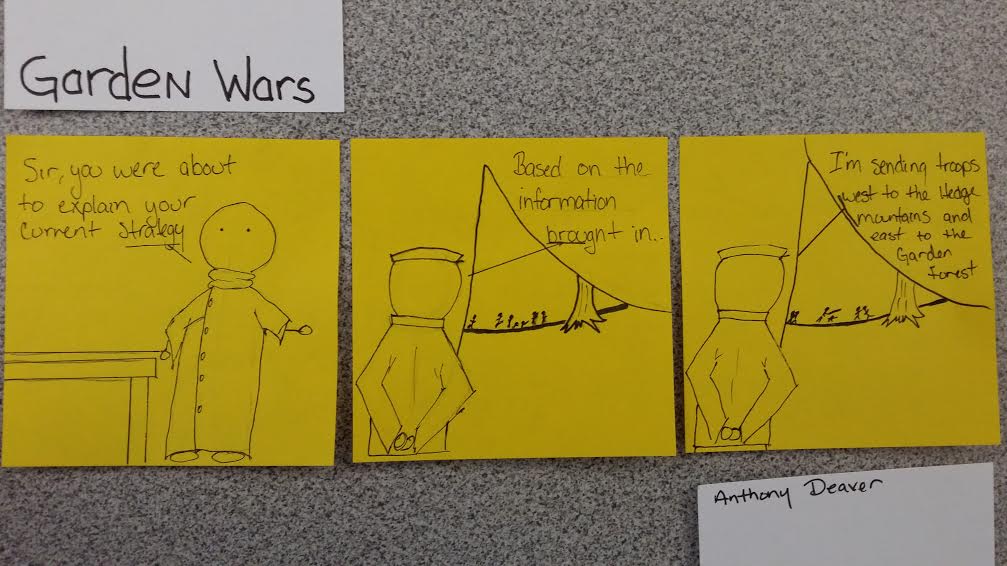 Garden Wars
Sir, you were about
to explain your
current strategy
Based on the
information
brought in..
I'm sending troops
west to the Hedge
mountains and
east to the
Garden
Forest
Anthony Deaver